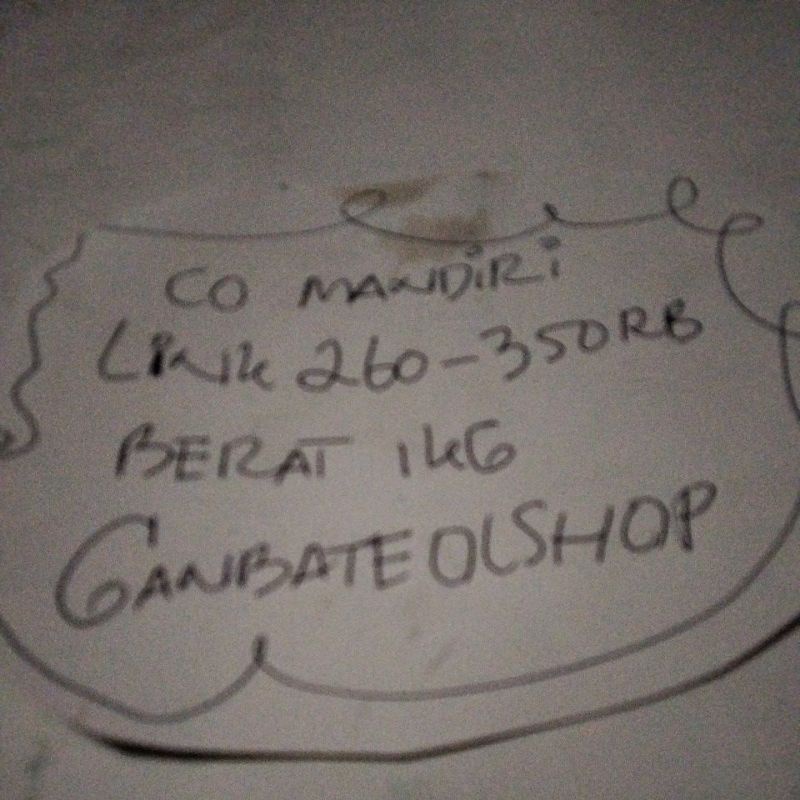 CO MANDIRI
LINK 260-350RB
BERAT 1KG
GANBATEOLSHOP